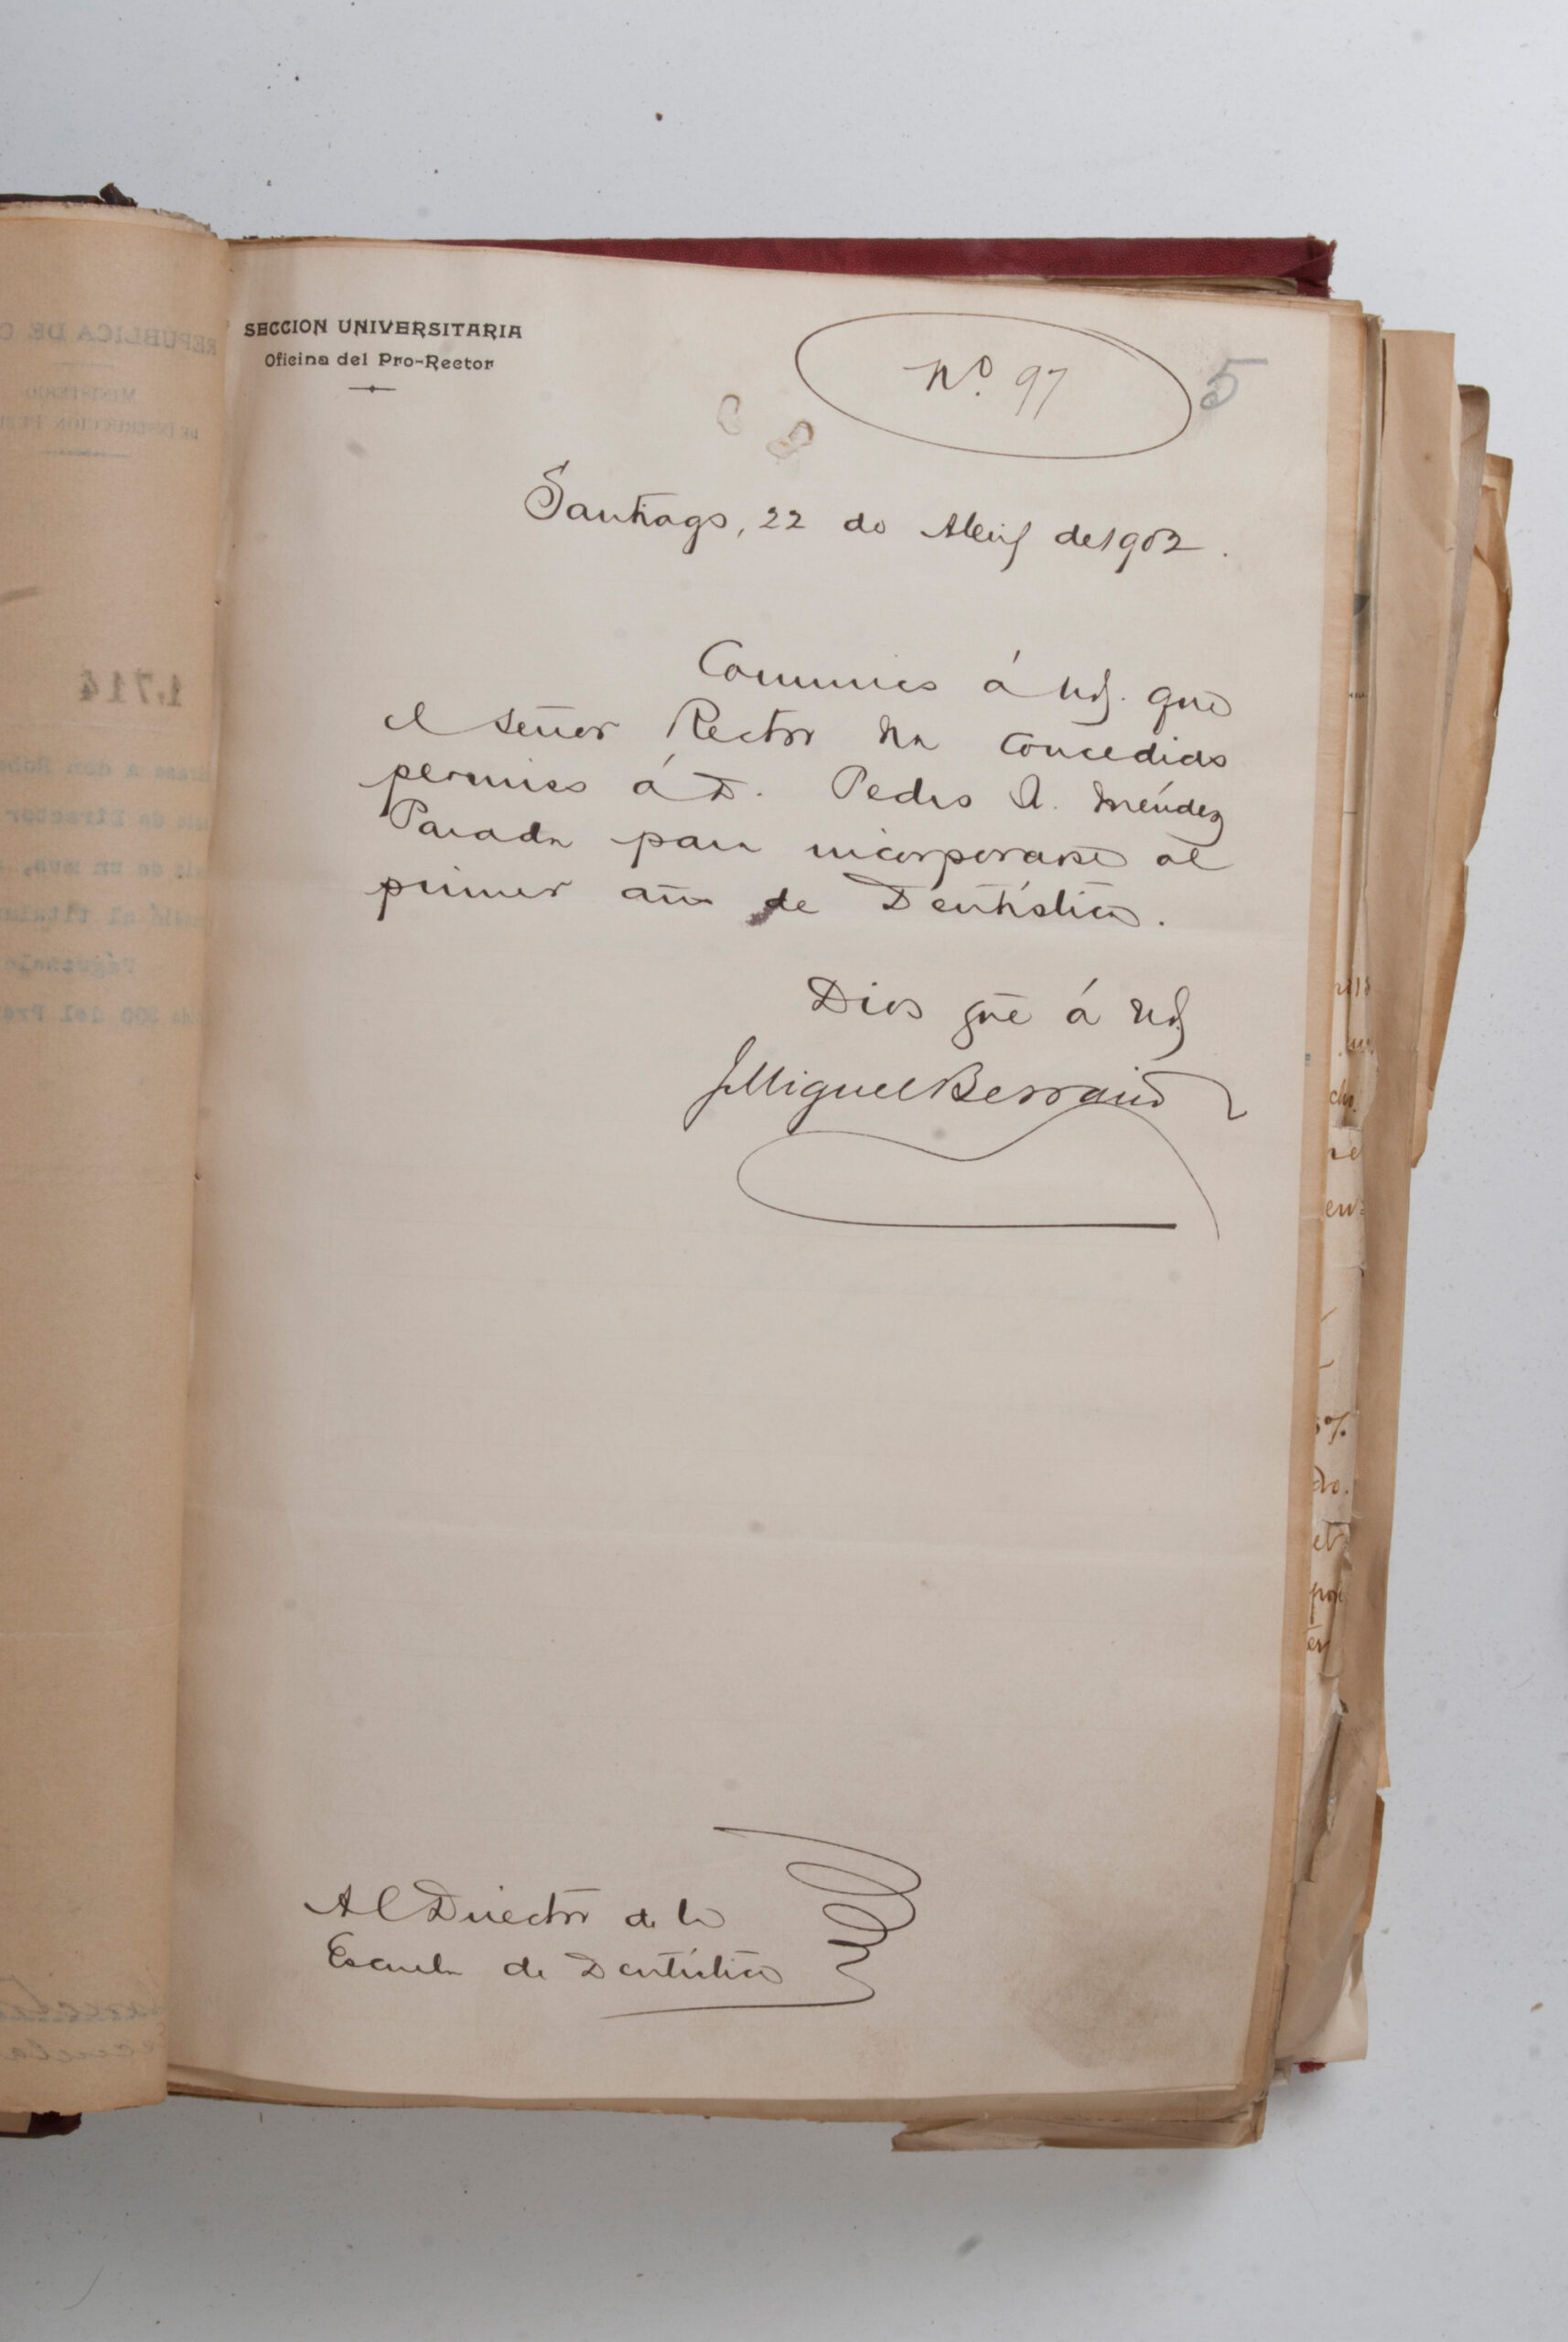 SECCION UNIVERSITARIA
Oficina del Pro-Rector
Nº. 97
5
Santiago, 22 de Abril de 1902.
Comunico á Ud. que
el señor Rector ha concedido
permiso á D. Pedro A. Méndez
Parada para incorporarse al
primer año de Dentística.
Dios gue á Ud
J. Miguel Besoain
Al Director de la
Escuela de Dentística
1.714